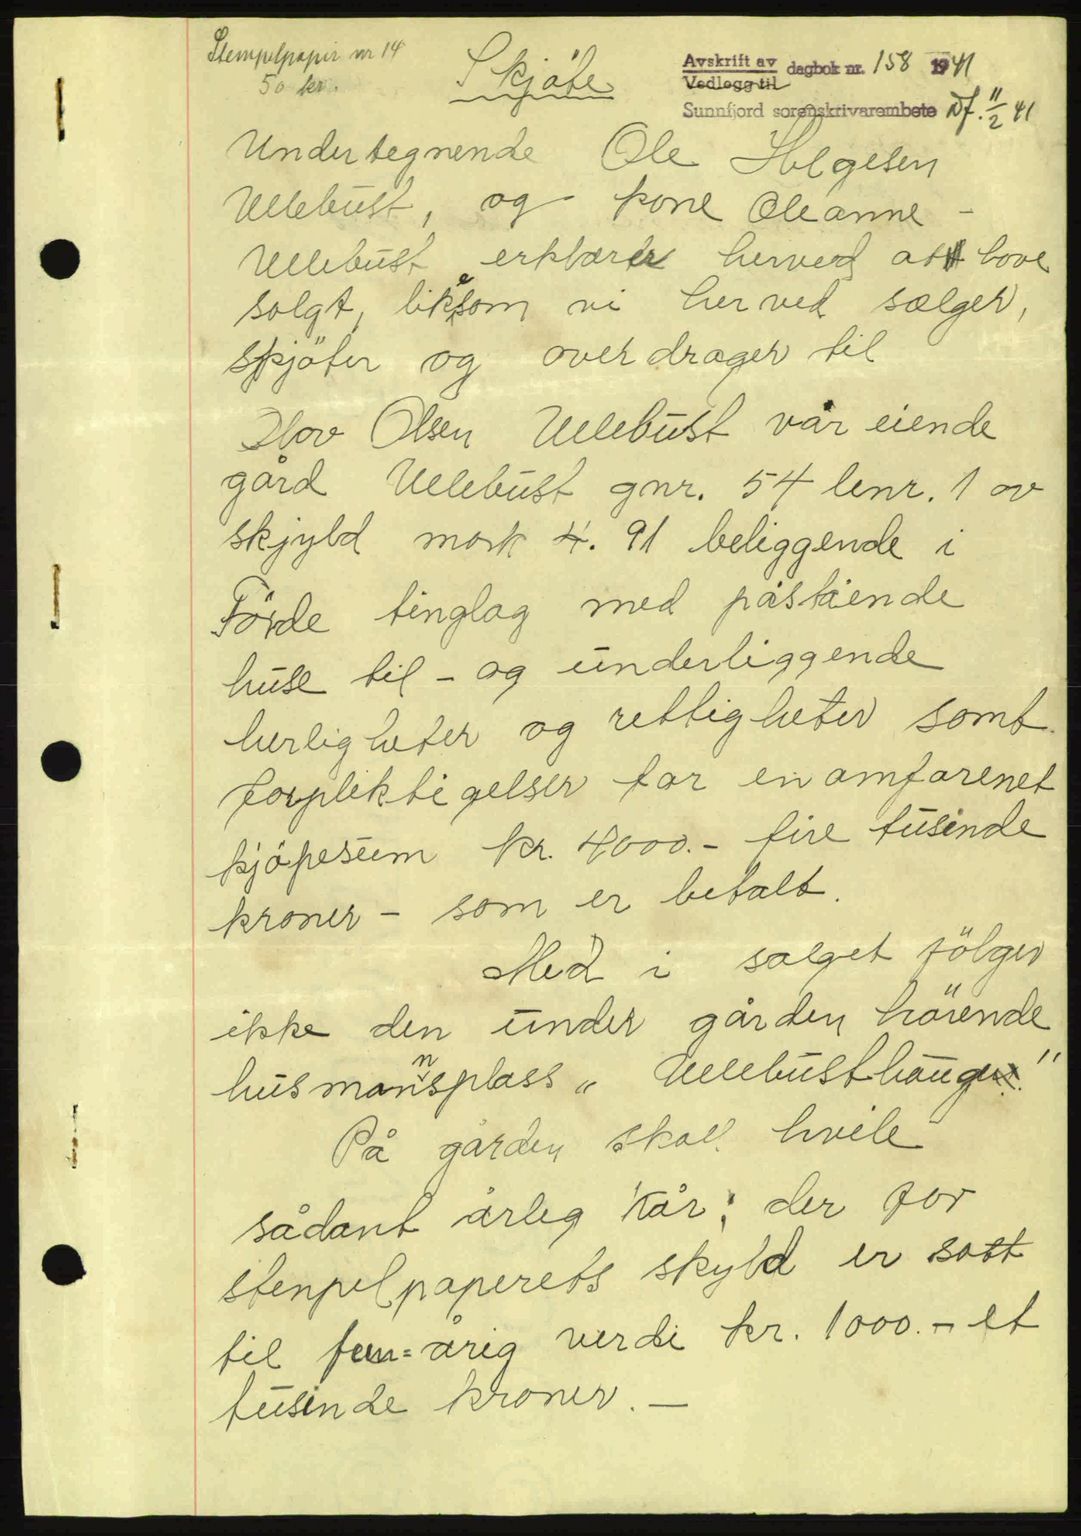 Stempelpapir nr 14
50 kr.
Skjöte
Avskrift av
Vedlegg til
dagbok nr. 158 1941
Sunnfjord sorenskrivarembete Df. 11/2 41
Undertegnende Ole Helgesen
Ullebust, og kone Oleanne -
Ullebust erklærer herved at have
solgt, likesom vi herved sælger,
skjöter og overdrager til
Olov Olsen Ullebust vår eiende
gård Ullebust gnr. 54 lenr. 1 av
skjyld mark 4.91 beliggende i
Förde tinglag med påståënde
huse til - og underliggende
herligheter og rettigheter samt
forpliktigelser for en omfarenet
kjöpesum kr. 4000.- fire tusinde
kroner - som er betalt.
Med i salget fölger
ikke den under gården hörende
husmannsplass „ Ullebusthaug"
På gården skal hvile
sådant årleg kår; der for
stenpelpaperets skyld er satt
til fem=årig verdi kr. 1000.- et
tusinde kroner. -